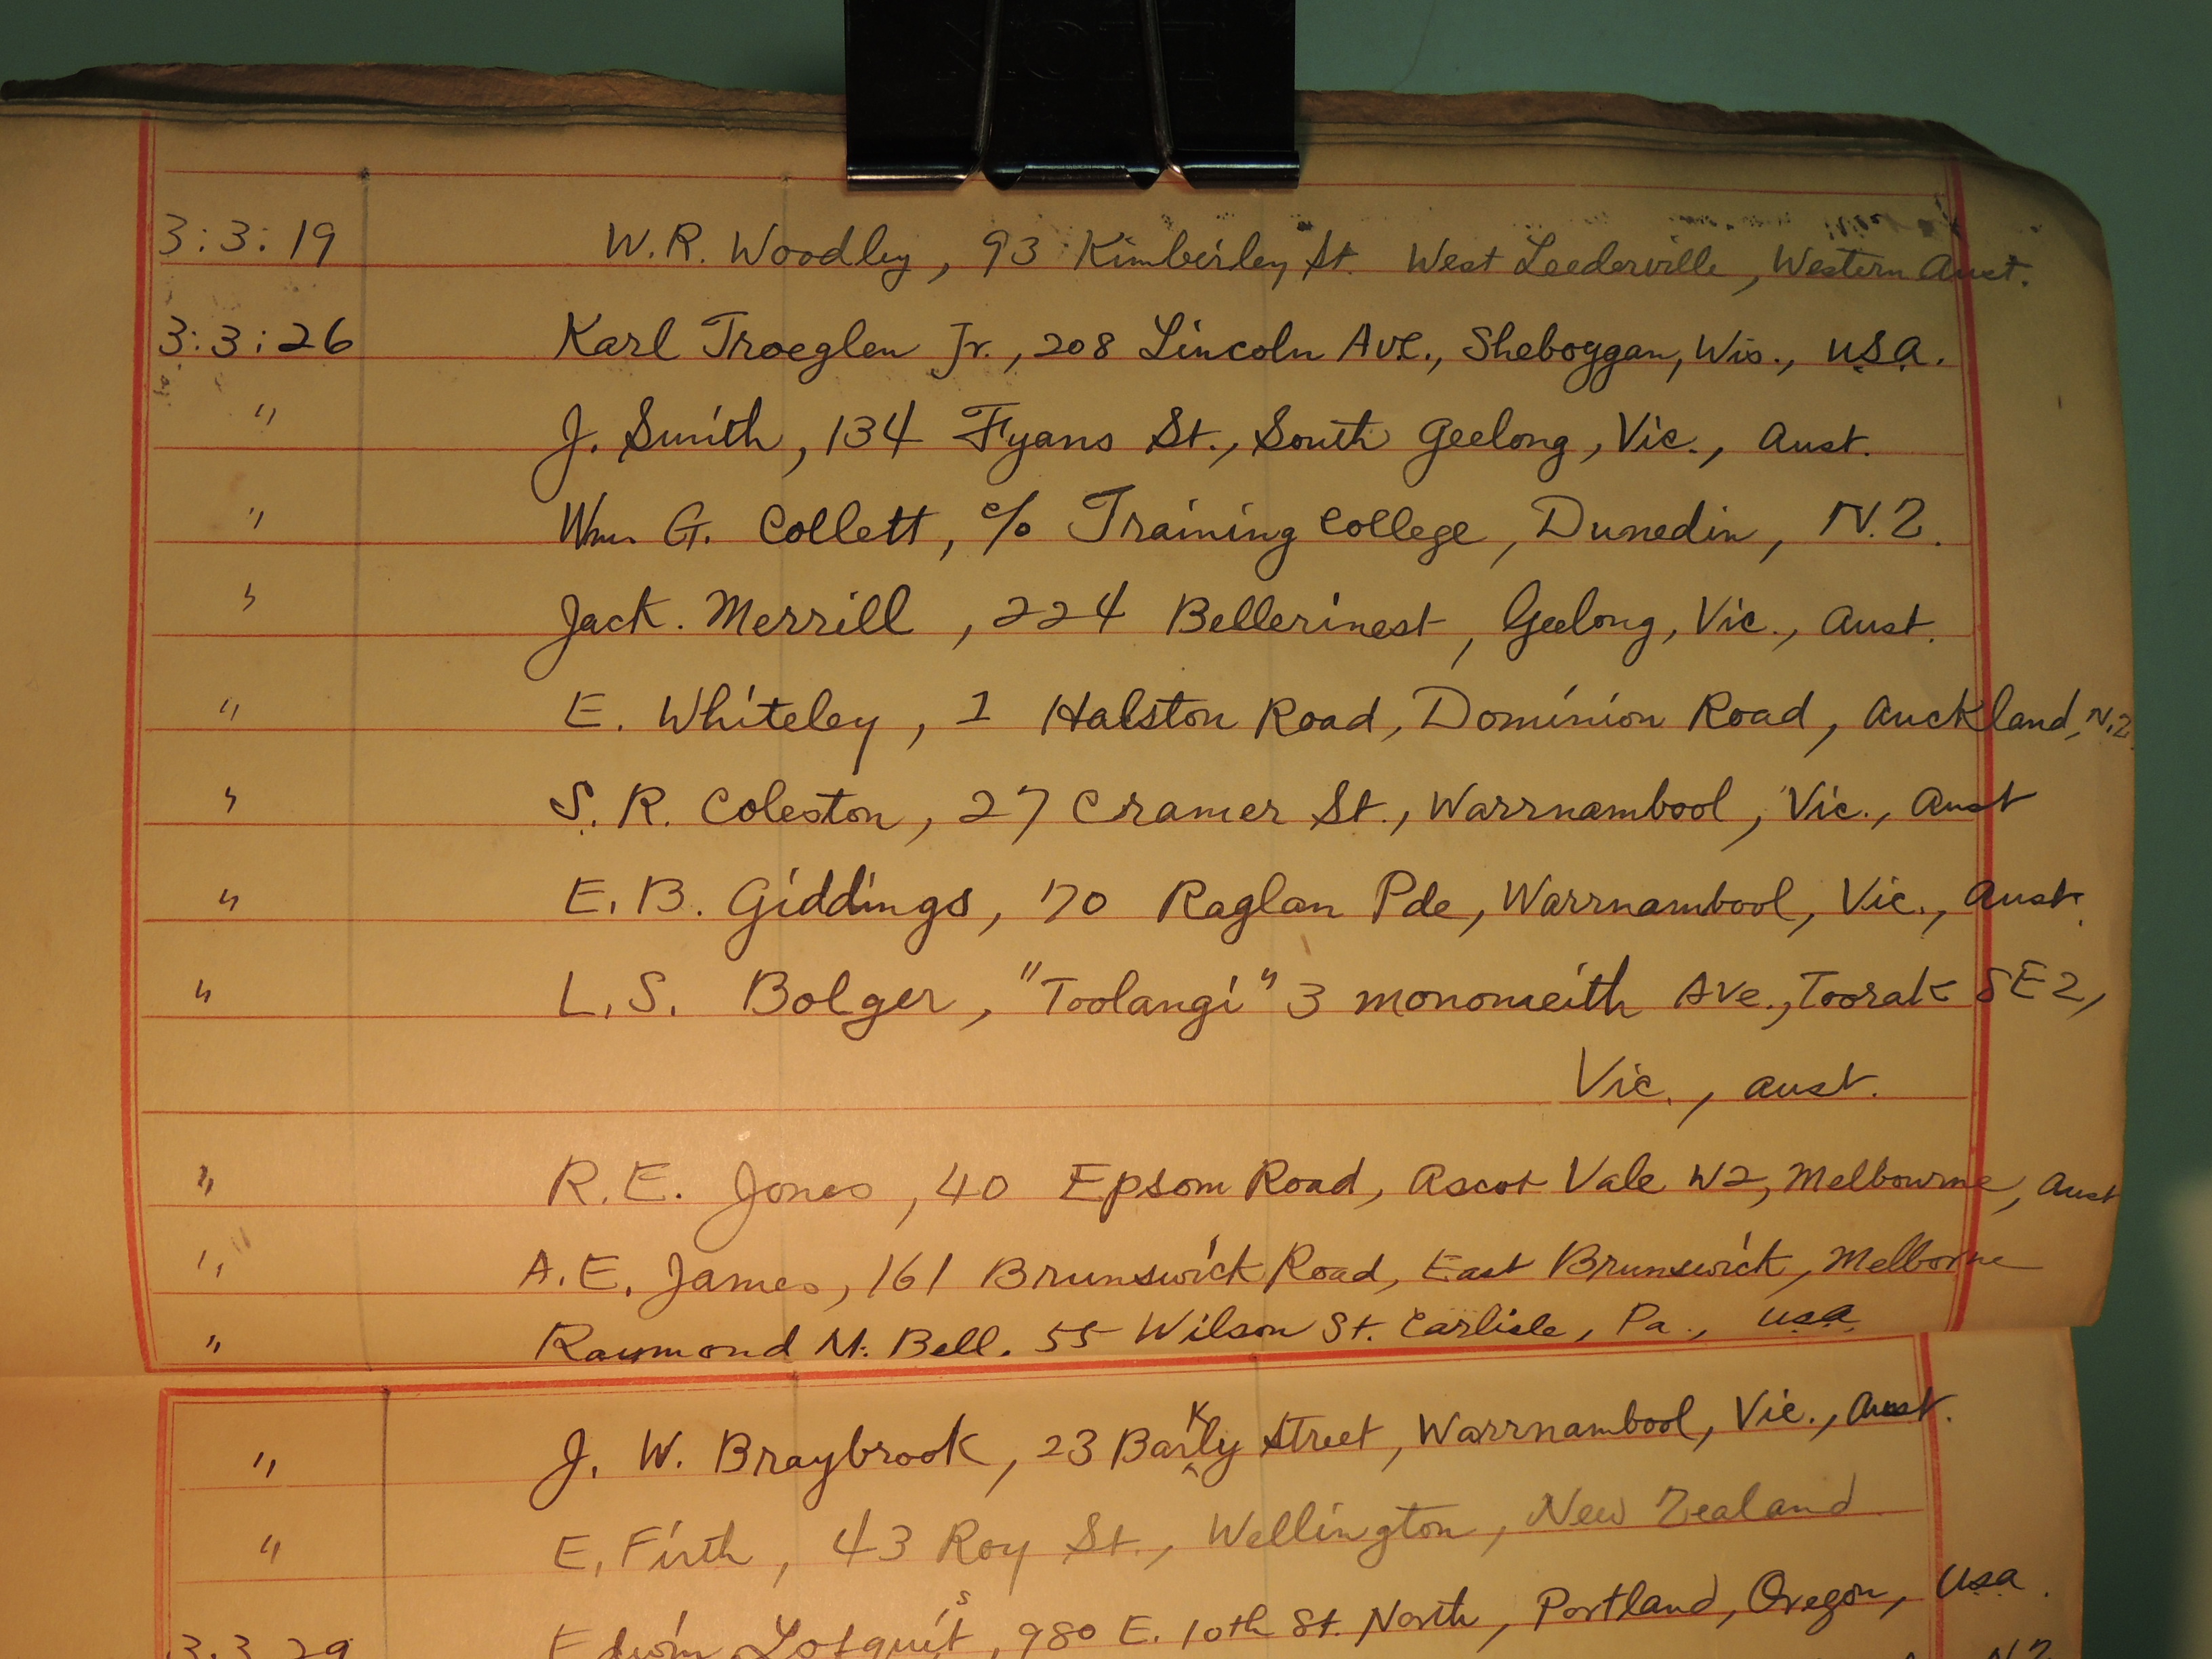 3:3:19 W.R. Woodley, 93 Kimberley St. West Leederville, Western Aust.
3:3:26 Karl Troeglen Jr., 208 Lincoln Ave., Sheboggan, Wis., USA.
" J. Smith, 134 Fyans St., South Geelong, Vic., Aust.
" Wm. G. Collett, c/o Training College, Dunedin, N.Z.
" Jack. Merrill, 224 Bellerinest, Geelong, Vic., Aust.
" E. Whiteley, 1 Halston Road, Dominion Road, Auckland, N.Z.
" S. R. Coleston, 27 Cramer St., Warrnambool, Vic., Aust
" E. B. Giddings, 70 Raglan Pde, Warrnambool, Vic., Aust.
" L. S. Bolger, "Toolangi" 3 Monomeith Ave., Toorak SE2,
Vic., Aust.
" R. E. Jones, 40 Epsom Road, Ascot Vale W2, Melbourne, Aust
" A. E. James, 161 Brunswick Road, East Brunswick, Melborne
" Raymond M. Bell. 55 Wilson St. Carlisle, Pa., USA.
" J. W. Braybrook, 23 Barkly Street, Warrnambool, Vic., Aust.
" E. Firth, 43 Roy St., Wellington, New Zealand
3.3.29 Edwin Lofquist, 980 E. 10th St. North, Portland, Oregon, USA.
N.Z.